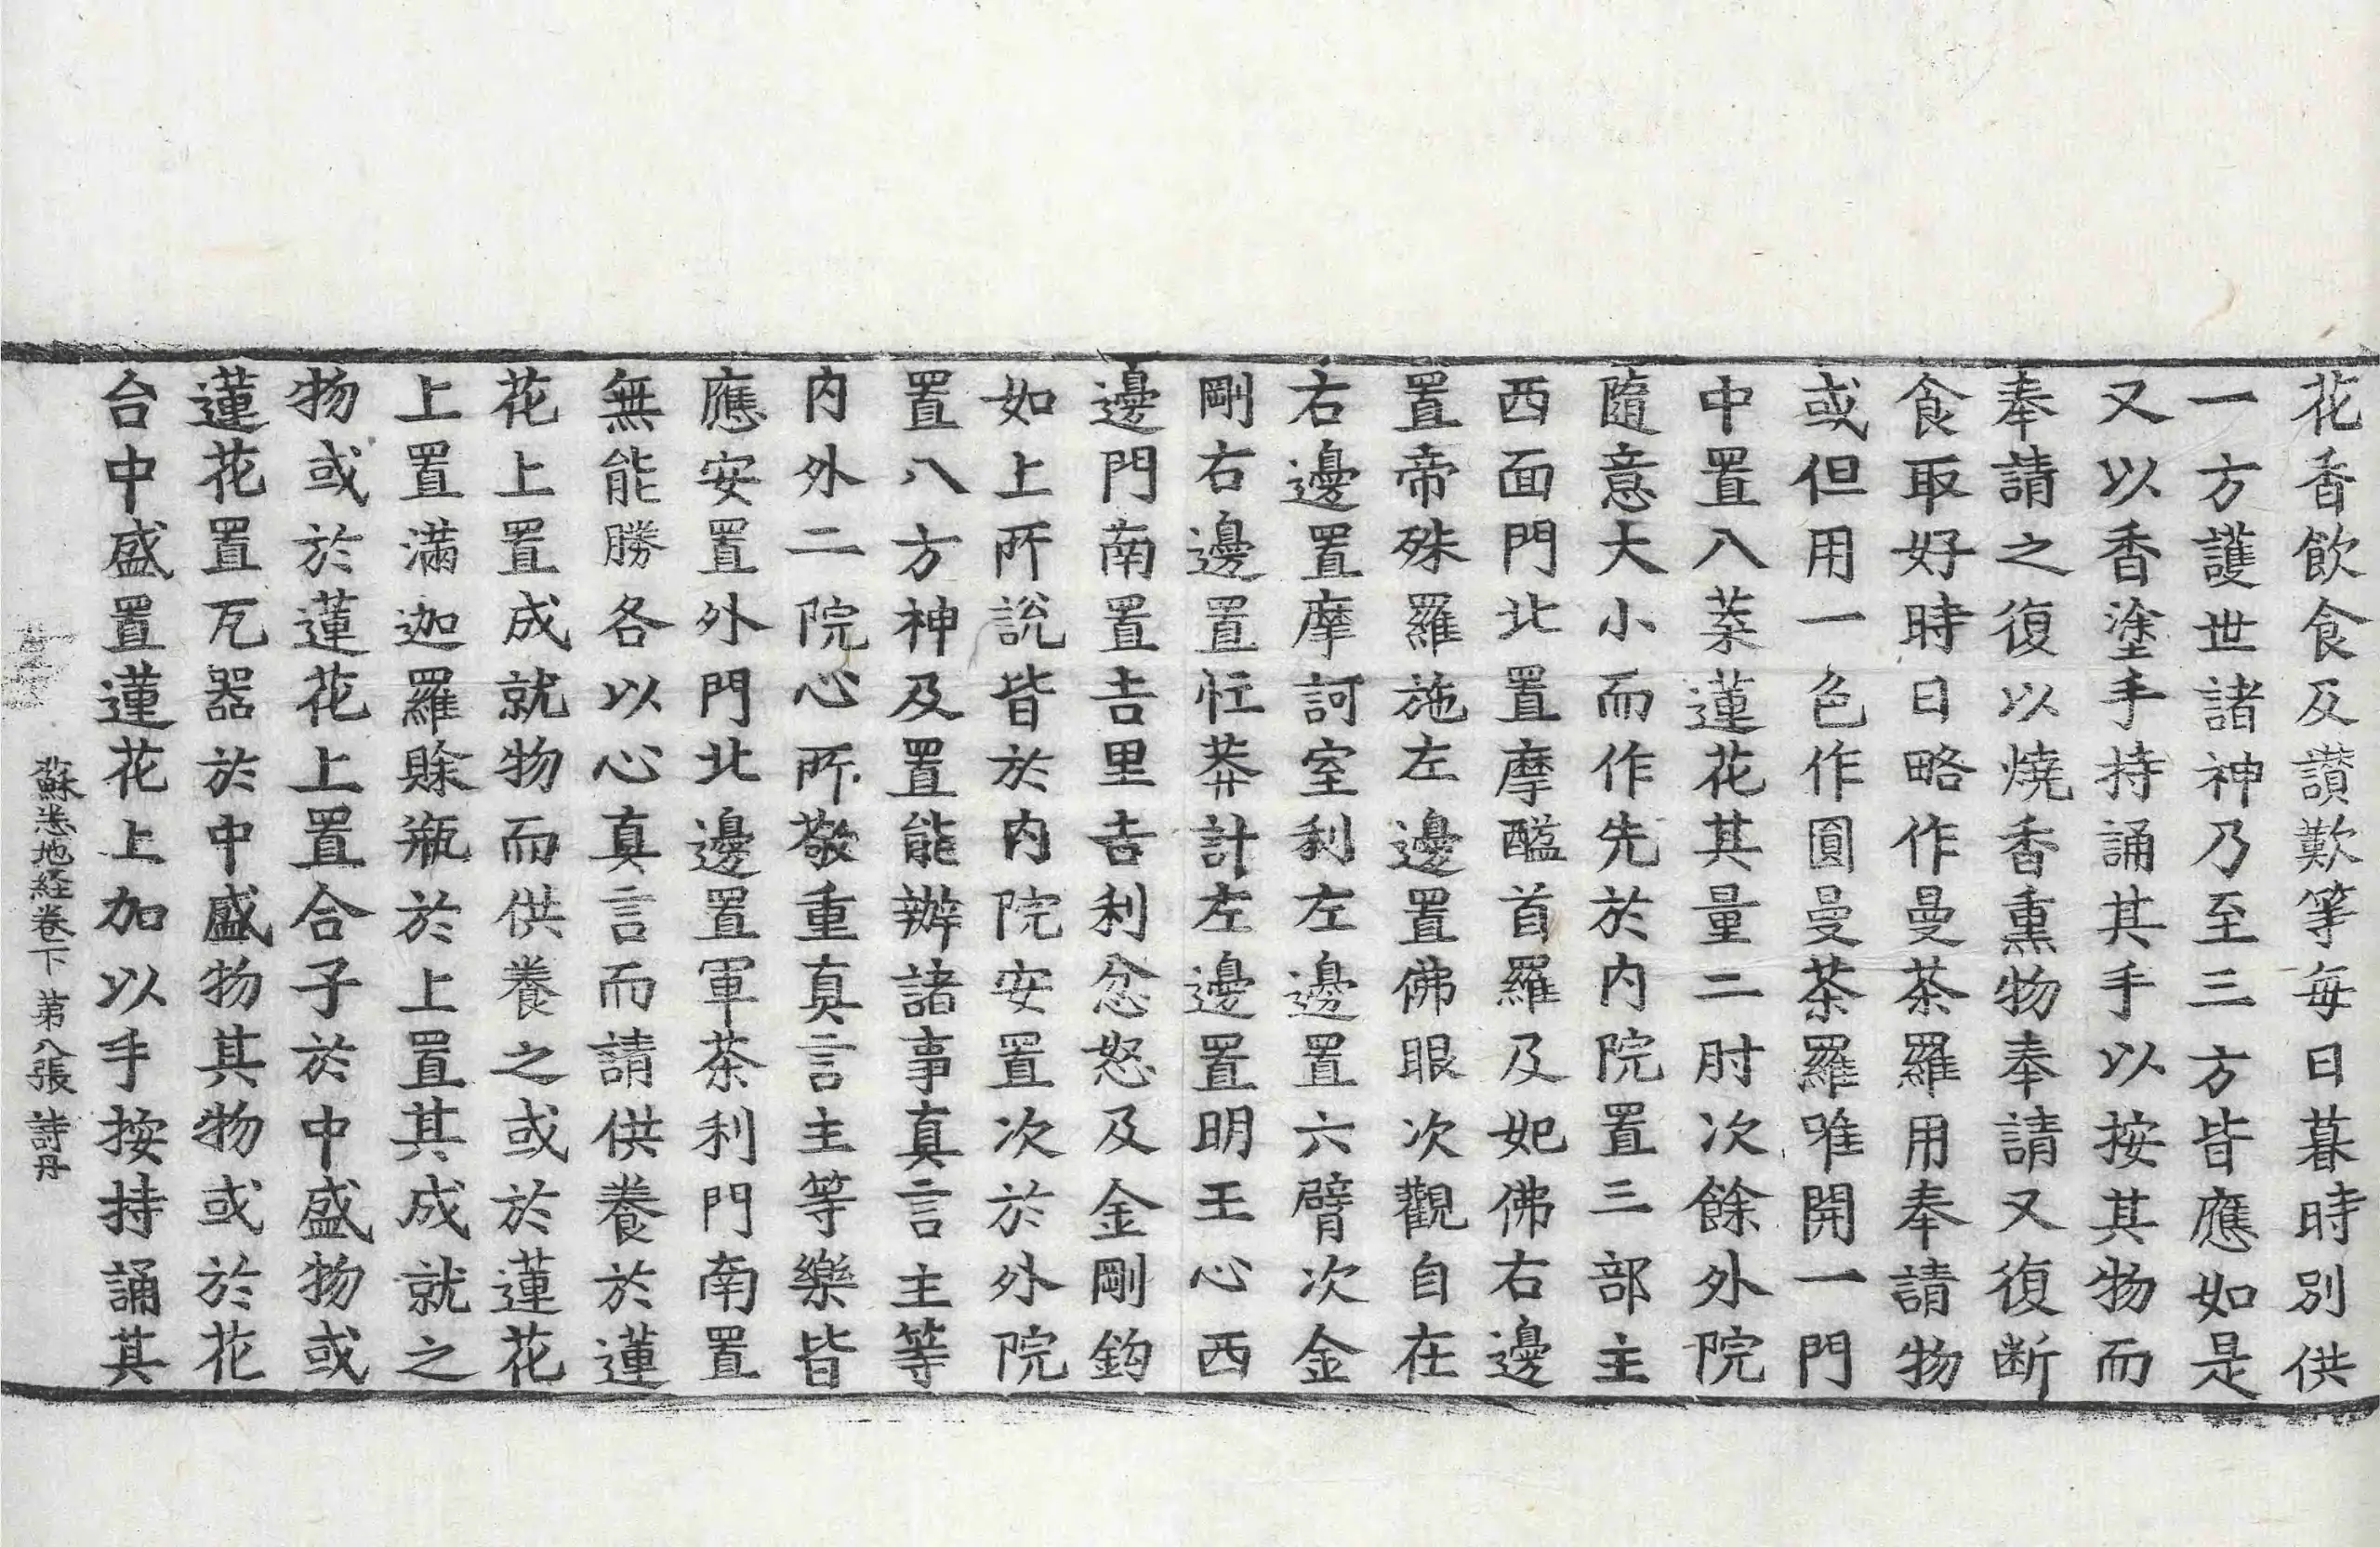 花香飲食及讚歎等每日暮時別供
一方護世諸神乃至三方皆應如是
又以香塗手持誦其手以按其物而
奉請之復以燒香熏物奉請又復断
食取好時日略作曼茶羅用奉請物
或但用一色作圓曼茶羅唯開一門
中置八葉蓮花其量二肘次餘外院
隨意大小而作先於內院置三部主
西面門北置摩醯首羅及妃佛右邊
置帝殊羅施左邊置佛眼次觀自在
右邊置摩訶室利左邊置六臂次金
剛右邊置忙莽計左邊置明王心西
邊門南置吉里吉利忿怒及金剛鈎
如上所說皆於內院安置次於外院
置八方神及置能辦諸事真言主等
內外二院心所敬重真言主等樂皆
應安置外門北邊置軍茶利門南置
無能勝各以心真言而請供養於蓮
花上置成就物而供養之或於蓮花
上置滿迦羅賖瓶於上置其成就之
物或於蓮花上置合子於中盛物或
蓮花置瓦器於中盛物其物或於花
台中盛置蓮花上加以手按持誦其
蘇悉地経卷下 第八張 詩丹